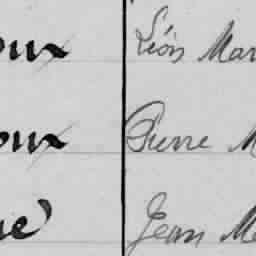 oux Léon Mar
oux Pierre M
ue Jean Me